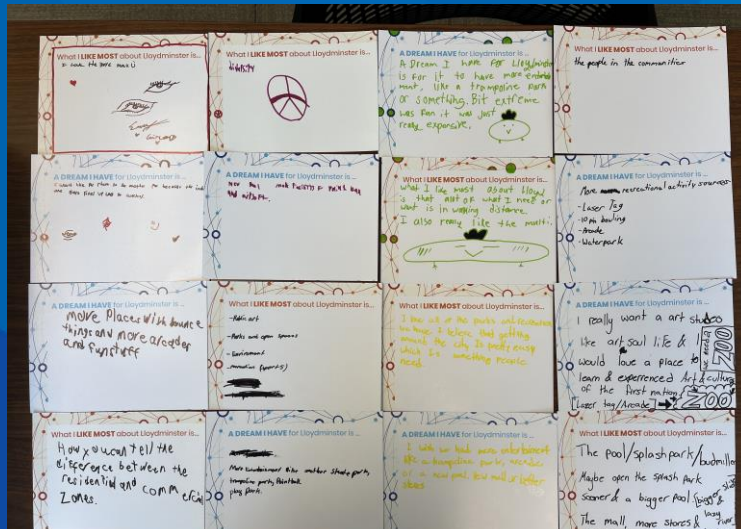 What I LIKE MOST about Lloydminster is...
What I LIKE MOST about Lloydminster is...
A DREAM I HAVE for Lloydminster is...
A Dream I have for Lloydminster
is for it to have more
ment, like a trampoline park
or something. Bit extreme
was fun it was just
really expensive.
What I LIKE MOST about Lloydminster is...
the people in the communities
A DREAM I HAVE for Lloydminster is...
A DREAM I HAVE for Lloydminster is...
What I LIKE MOST about Lloydminster is...
What I like most about Lloyd
is that alot of what I need or
what is in walking distance.
I also really like the multi.
A DREAM I HAVE for Lloydminster is...
More recreational activity sources
-Laser Tag
-10 pin bowling
-Arcade
-Waterpark
A DREAM I HAVE for Lloydminster is...
more Places with bounce
things and more arcades
and fun stuff
What I LIKE MOST about Lloydminster is...
-Public art
-Parks and open spaces
-Environment
What I LIKE MOST about Lloydminster is...
I like all of the parks and
we have. I believe that getting
around the city is pretty easy
which is something people
need
A DREAM I HAVE for Lloydminster is...
I really want a art studeo
like art soul life & I
would love a place to
learn & experienced Art & culture
of the first nation
[Laser tag/Arcade]
we need a
ZOO
ZOO
What I LIKE MOST about Lloydminster is...
How you can tell the
difference between the
residential and commercial
Zones.
A DREAM I HAVE for Lloydminster is...
More entertainment like another skate park,
trampoline park, Paintball
play park.
A DREAM I HAVE for Lloydminster is...
I wish we had more entertainment
like a trampoline park, arcades
or a new pool, new mall or better
stores
What I LIKE MOST about Lloydminster is...
The pool/splash park/budmiller
Maybe open the splash park
sooner & a bigger pool [bigger slide
The mall more stores & lazy river